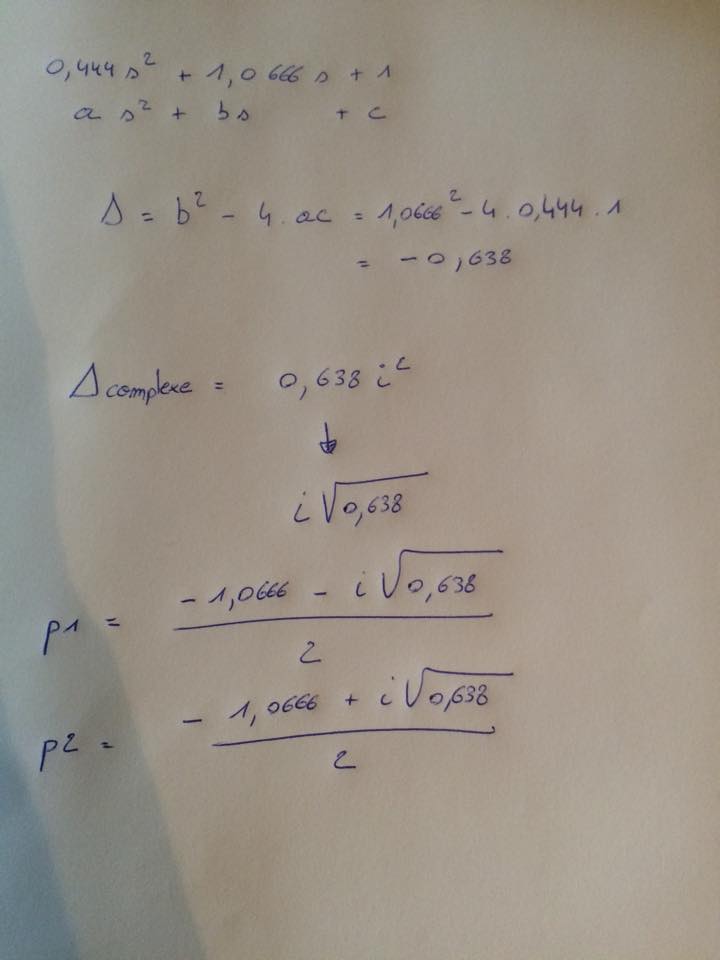 0,444 s² + 1,0666 s + 1
a s² + bs + c
Δ = b² - 4 . ac = 1,0666² - 4 . 0,444 . 1
= - 0,638
Δ complexe = 0,638 i²
↓
i √0,638
p1 = (- 1,0666 - i √0,638) / 2
p2 = (- 1,0666 + i √0,638) / 2